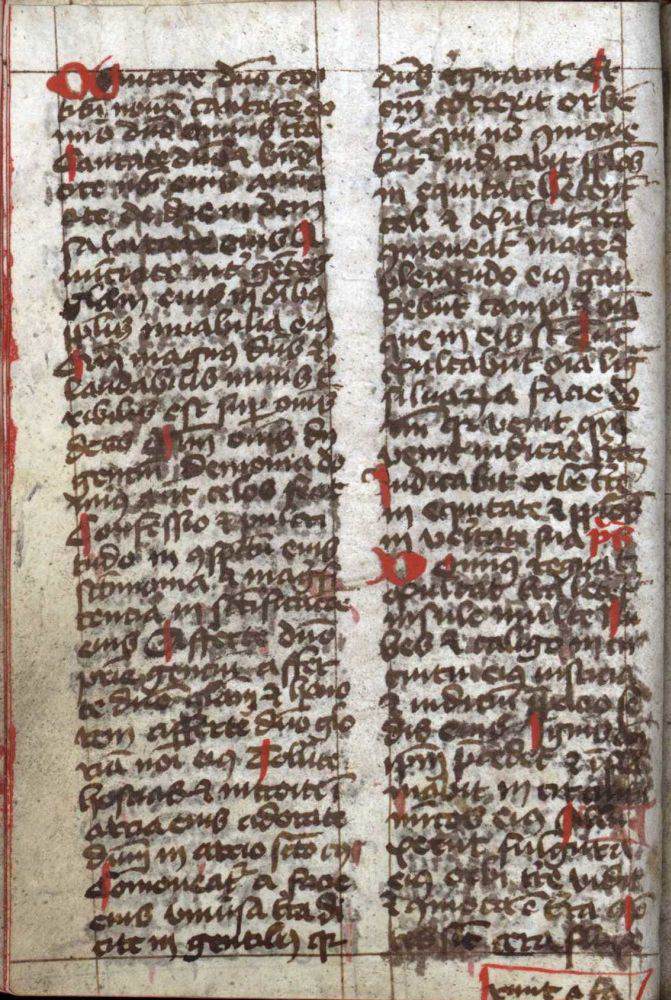 Cantate dno can
ticu nouu cantate do
mino dno omnis tra
Cantate dno & bndi
cite noi eius anuncia
te de die in diem
salutare eius A
nuctiate int gentes
gliam eius in oibus
pplis mirabilia eius
Qm magnus dns &
laudabilis nimis t
ribilis est sup omes
deos Qm omes dii
gentiu demonia do
mins aut celos fecit
Confessio & pulcri
tudo in ospectu eius
scimonia & magnifi
centia in sctificatoe
eius Afferte dno
prie gentiu affer
te dno gliam & hono
rem afferte dno glo
ria noi eius Tollite
hostias & introite i
atria eius adorate
dnm in atrio sco eius
Comoueat a facie
eius uniusa tra di
cite in gentibs qr
dns regnauit Et
eni correxit orbe
tre qui no comoue
bit iudicabit pplos
in equitate Letent
celi & exultat tra
comoueat mare &
plenitudo eius gau
debut campi & oia
que in eis st Tuc
exultabut oia lig
siluaru a facie do
mini qr uenit qm
uenit iudicare tra
Iudicabit orbe tre
in equitate & pplos
in ueritate sua ps
Dominus regnauit
exultat tra letet
insule multe Nu
bes & caligo in cir
cuitu eius iusticia
& iudiciu correctio se
dis eius Ignis an
ipm pcedet & ifla
mabit in circuitu
inimicos eius Illu
xerut fulgura
eius orbi tre uidit
& comota e tra Mo
tes sic cera flux
erunt a fa